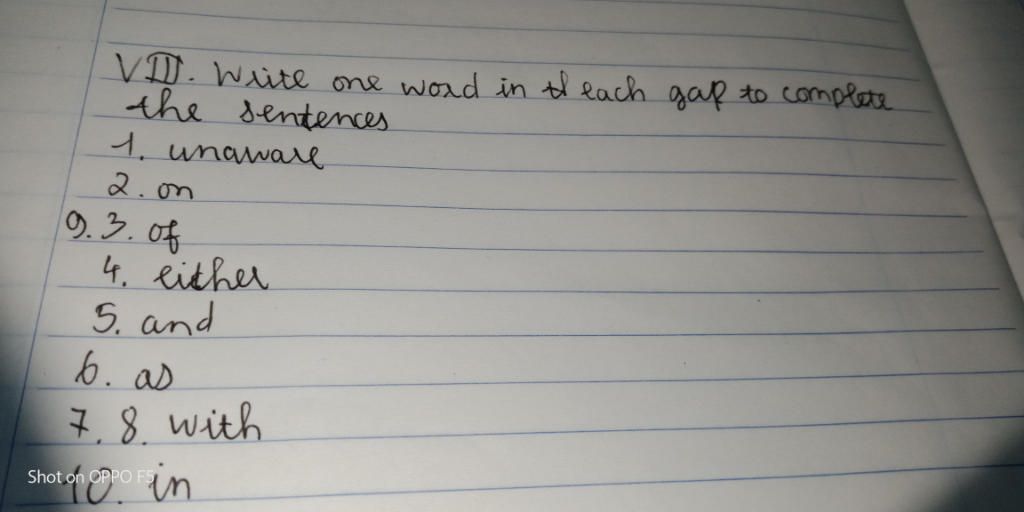 VIII. Write one word in each gap to complete
the sentences
1. unaware
2. on
9. 3. of
4. either
5. and
6. as
7. 8. with
10. in
Shot on OPPO F5